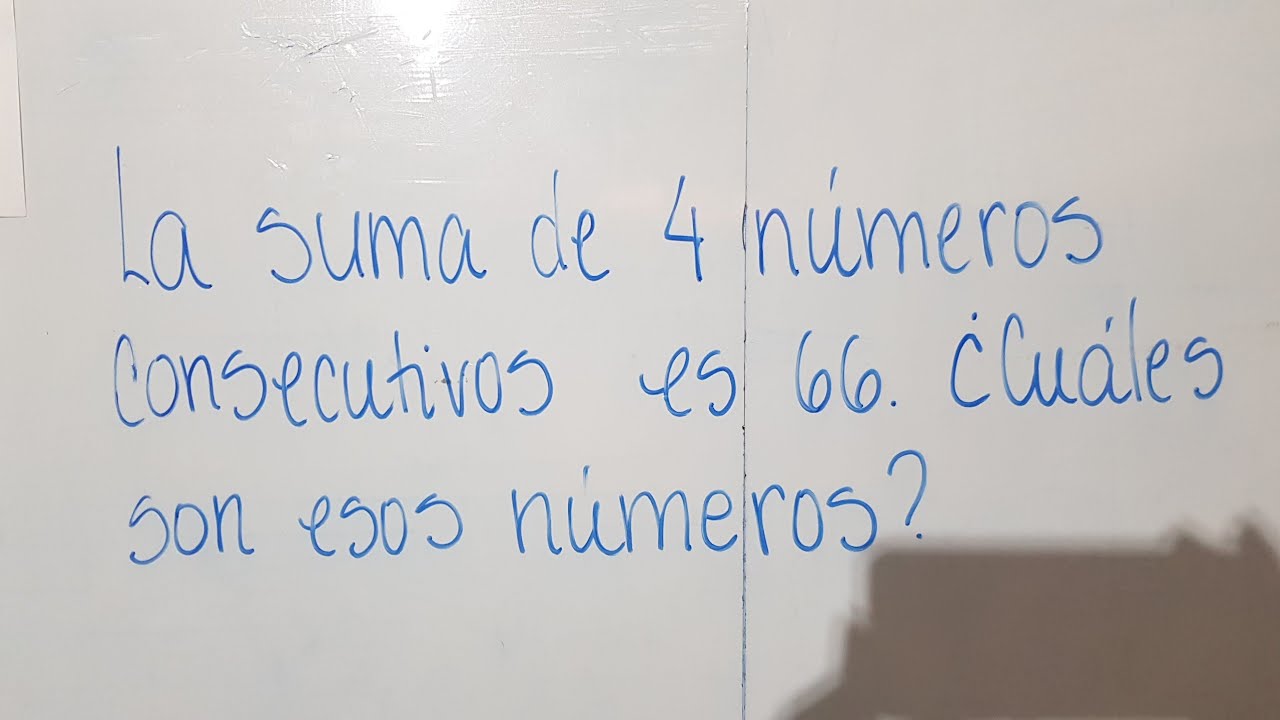 La suma de 4 números
consecutivos es 66. ¿Cuáles
son esos números?